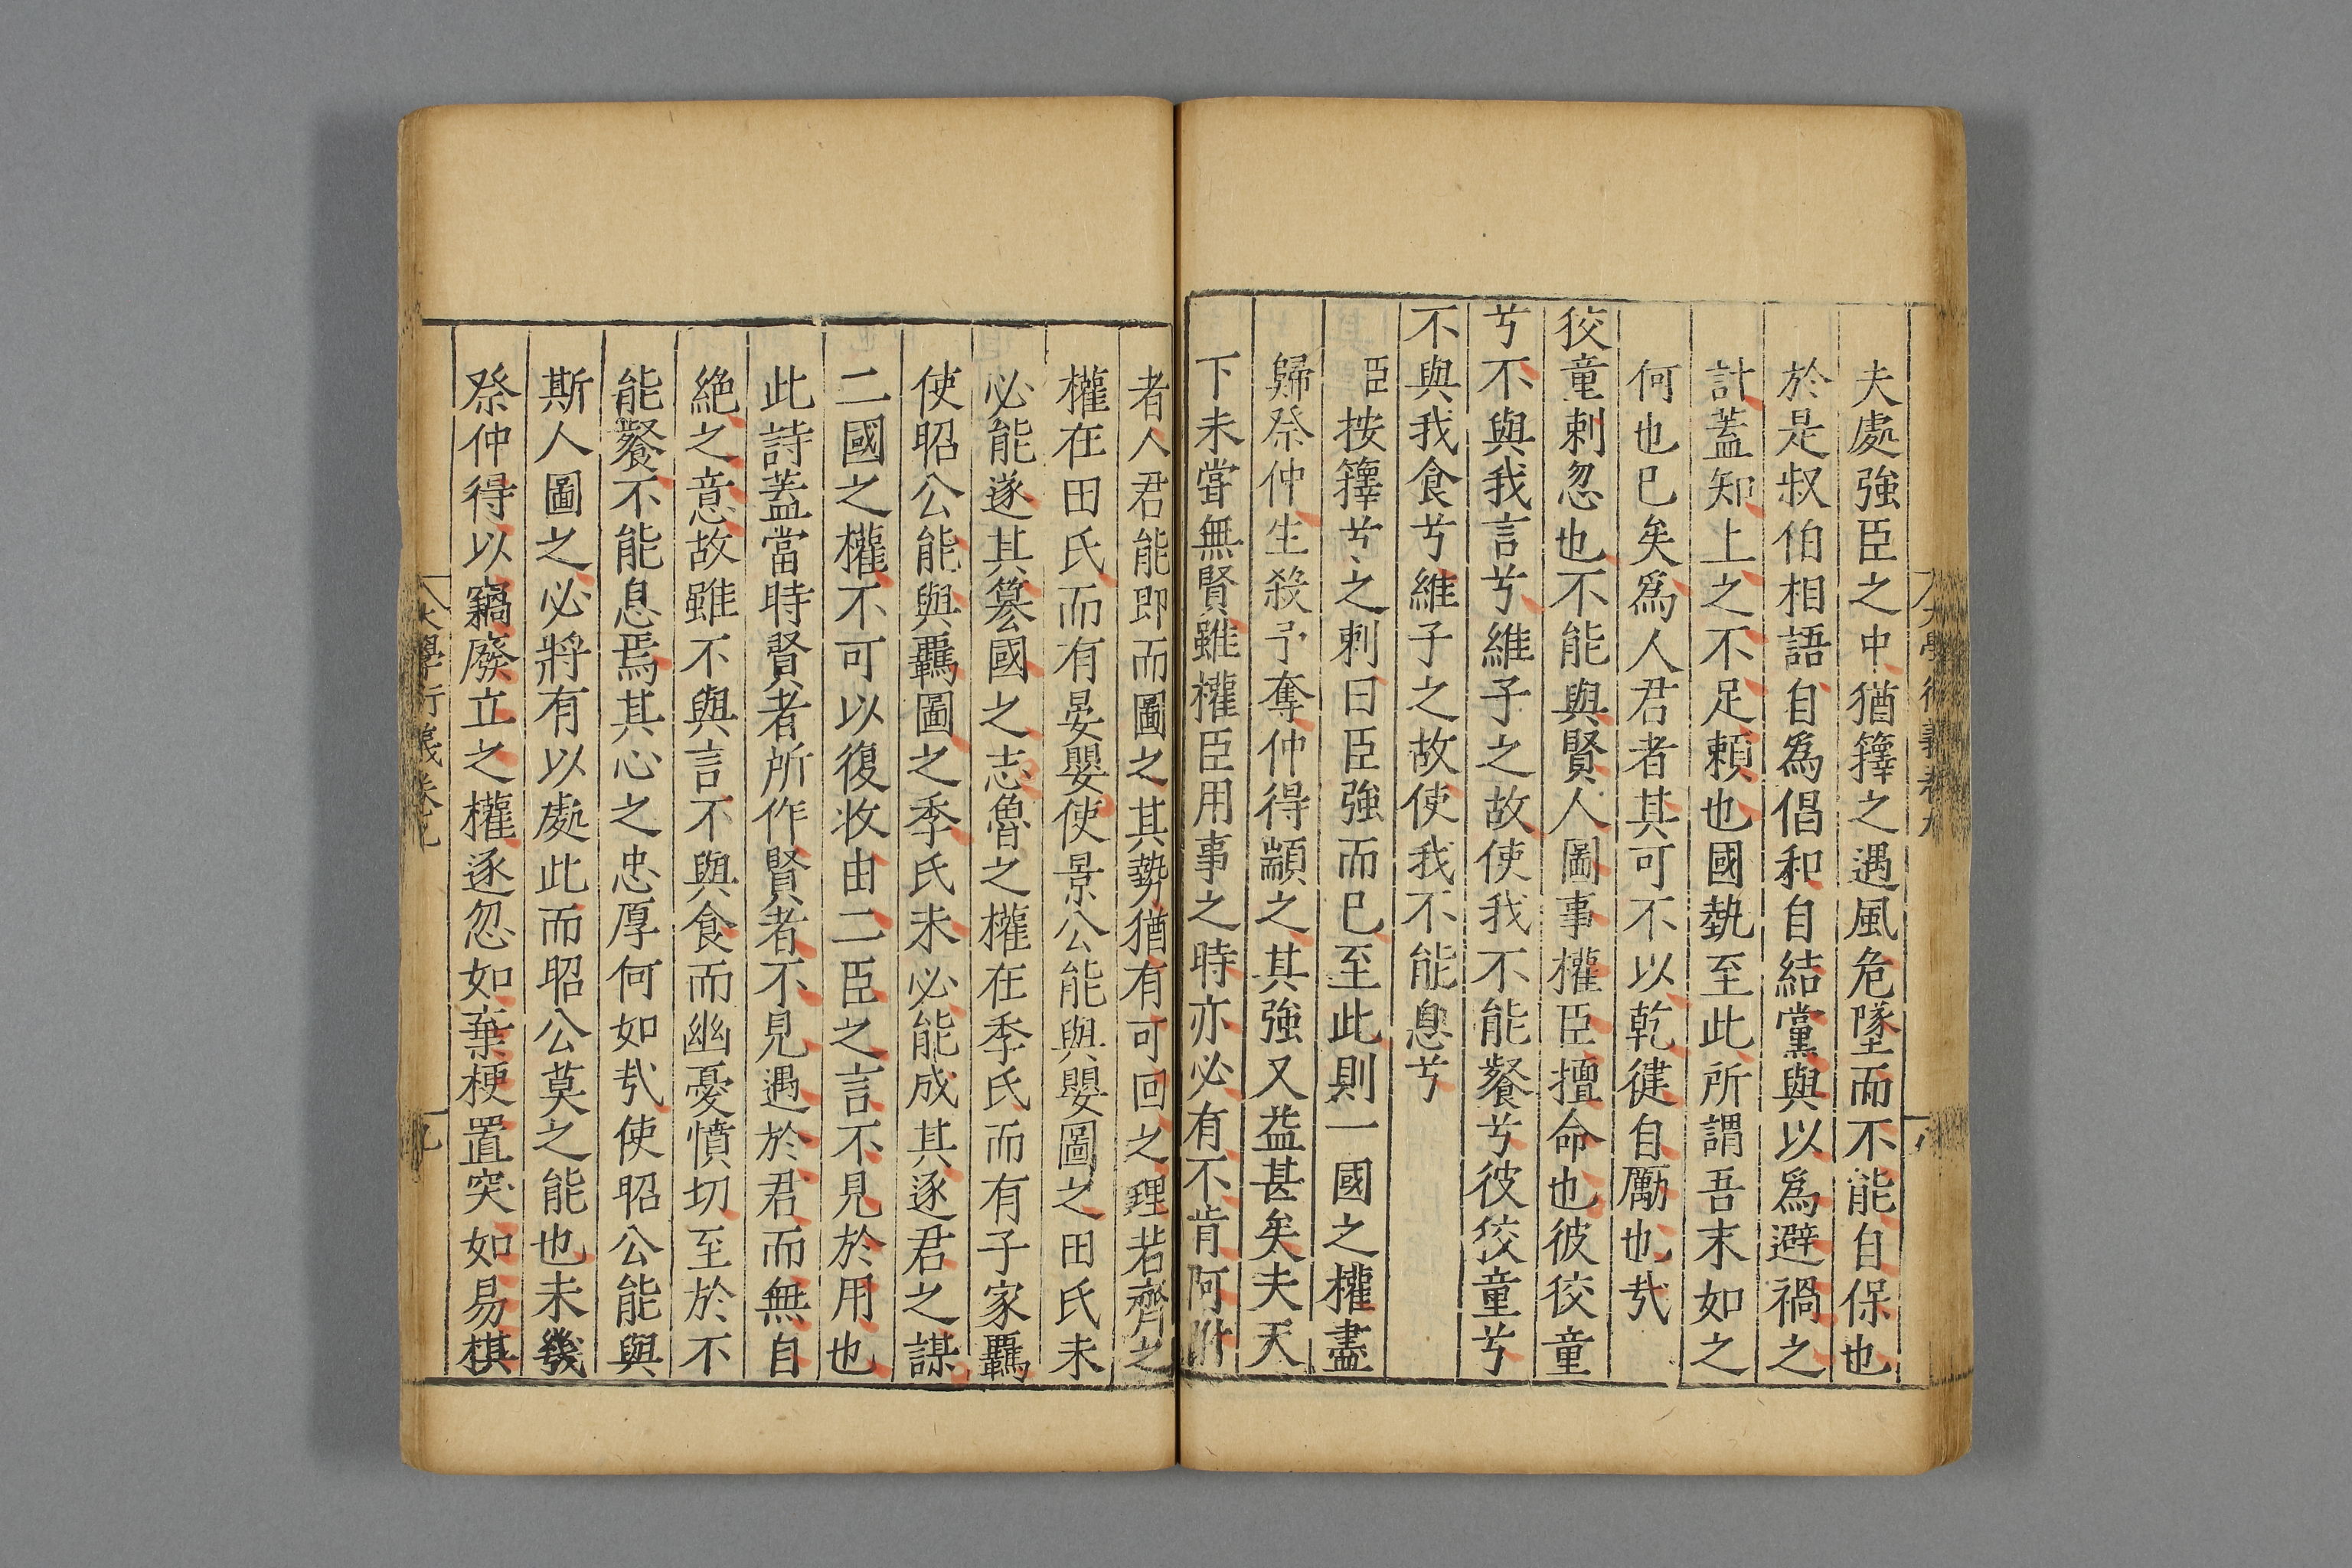 夫處強臣之中猶籜之遇風危墜而不能自保也
於是叔伯相語自爲倡和自結黨與以爲避禍之
計蓋知上之不足頼也國埶至此所謂吾末如之
何也已矣爲人君者其可不以乾健自厲也㢤
狡童刺忽也不能與賢人圖事權臣擅命也彼狡童
兮不與我言兮維子之故使我不能餐兮彼狡童兮
不與我食兮維子之故使我不能息兮
臣按籜兮之刺曰臣強而已至此則一國之權盡
歸祭仲生殺予奪仲得顓之其強又益甚矣夫天
下未甞無賢雖權臣用事之時亦必有不肯阿附
者人君能即而圖之其勢猶有可回之理若齊之
權在田氏而有晏嬰使景公能與嬰圖之田氏未
必能遂其簒國之志魯之權在季氏而有子家覊
使昭公能與覊圖之季氏未必能成其逐君之謀
二國之權不可以復收由二臣之言不見於用也
此詩蓋當時賢者所作賢者不見遇於君而無自
絶之意故雖不與言不與食而幽憂憤切至於不
能餐不能息焉其心之忠厚何如㢤使昭公能與
斯人圖之必將有以處此而昭公莫之能也未幾
祭仲得以竊廢立之權逐忽如棄梗置突如易棋
大學衍義卷九